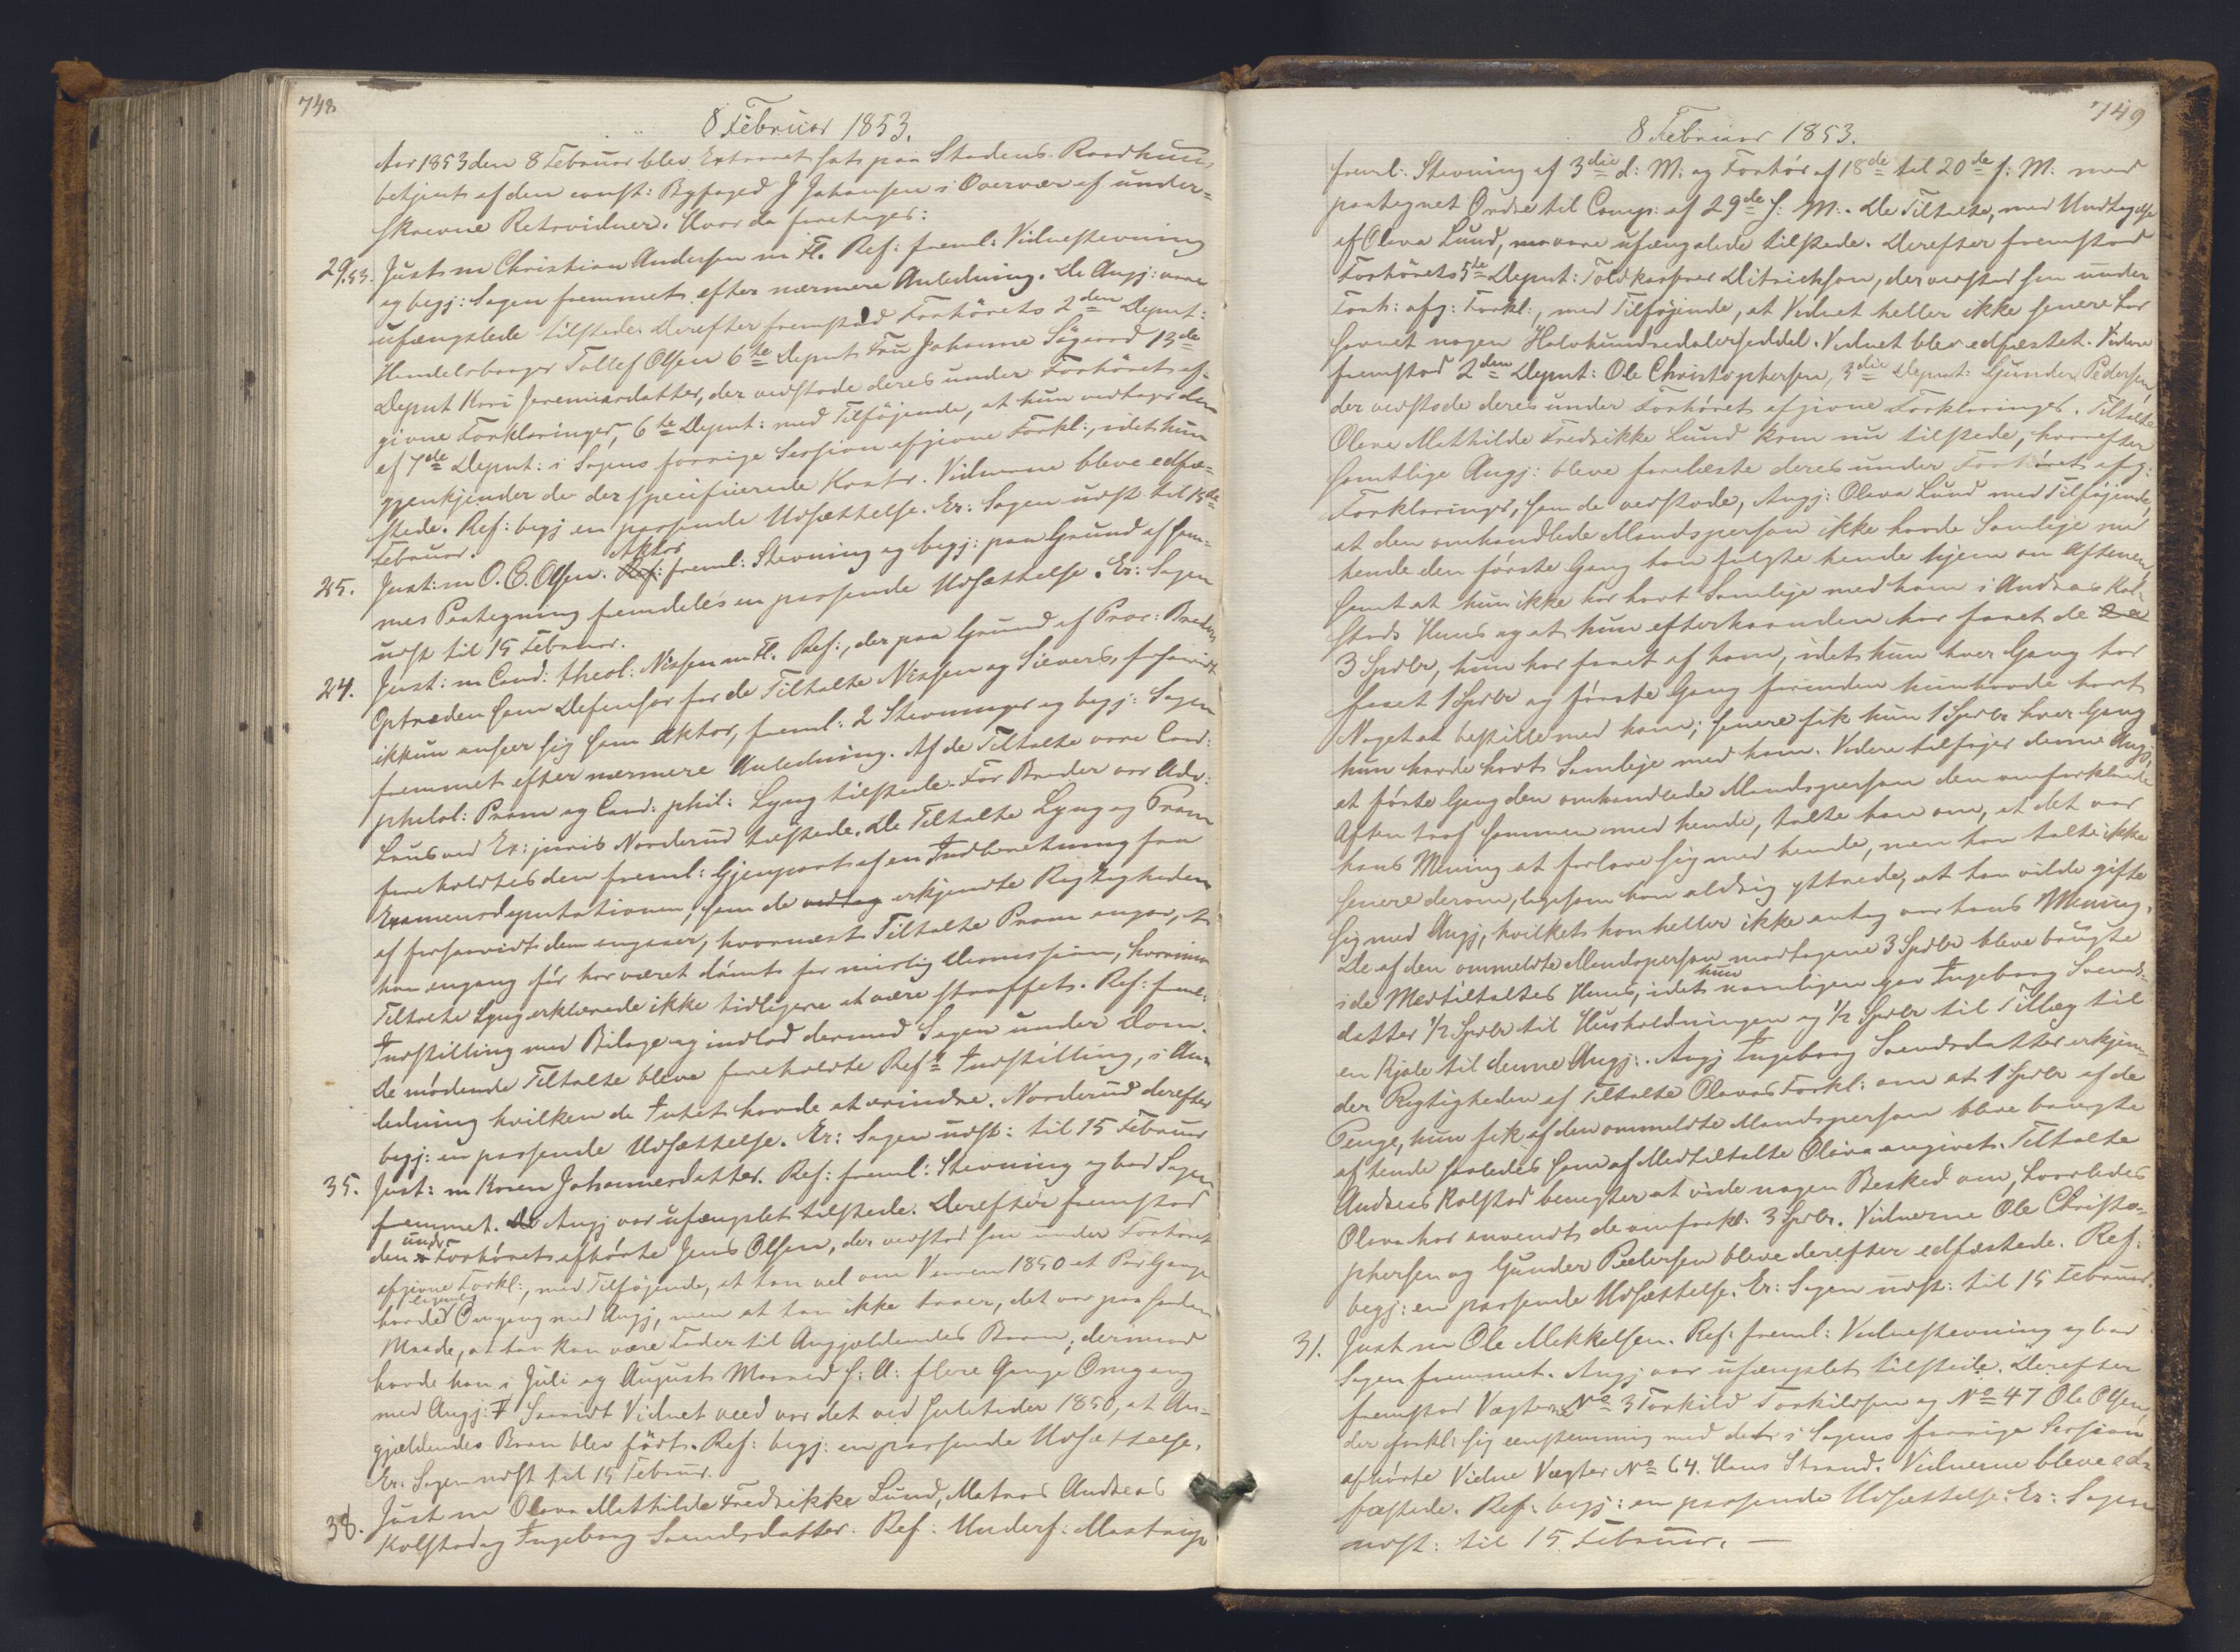 748
8 Februar 1853.
Aar 1853 den 8 Februar blev Extraret sat paa Stadens Raadhuus,
betjent af den const: Byfoged J Johansen i Overvær af under=
skrevne Retsvidner. Hvor da foretages:
29/53. Just: m Christian Andersen m Fl. Ref: freml: Vidnestevning
og begj: Sagen fremmet efter nærmere Anledning. De Angj: vare
ufængslede tilstede. Derefter fremstod Forhörets 2den Deput:
Handelsborger Tollef Olsen 6te Deput: Fru Johanne Sögaard 13de
Deput Kari Jeremiasdatter, der vedstode deres under Forhöret af=
givne Forklaringer, 6te Deput: med Tilföjende, at hun vedtager den
af 7de Deput: i Sagens forrige Session afgivne Forkl:, idet hun
gjenkjender de der specificerede Koster. Vidnerne bleve edfæ=
stede. Ref: begj en passende Udsættelse. Er: Sagen uds: til 15de
Februar.
25. Just: m O. C. Olsen. Ref: Aktor freml: Stevning og begj: paa Grund af sam=
mes Paategning fremdeles en passende Udsættelse. Er: Sagen
uds: til 15 Februar.
24. Just: m Cand: theol: Nissen m Fl. Ref:, der paa Grund af Proc: Breders
Optræden som Defensor for de Tiltalte Nissen og Sievers, forsaavidt
ikkun anseer sig som Aktor, freml: 2 Stevninger og begj: Sagen
fremmet efter nærmere Anledning. Af de Tiltalte vare Cand:
philol: Pram og Cand: phil: Lyng tilstede. For Breder var Adv:
Laus ved Ex: juris Norderud tilstede. De Tiltalte Lyng og Pram
foreholdtes den freml: Gjenpart af en Indberetning fra
Examensdeputationen, som de vedtog erkjendte Rigtigheden
af forsaavidt dem angaaer, hvornæst Tiltalte Pram angav, at
han engang för har været dömt for urigtig Demission, hvorimod
Tiltalte Lyng erklærede ikke tidligere at være straffet. Ref: freml:
Indstilling med Bilage og indlod dermed Sagen under Dom.
De mödende Tiltalte bleve foreholdte Refs Indstilling, i An=
ledning hvilken de Intet havde at erindre. Norderud derefter
begj: en passende Udsættelse. Er: Sagen uds: til 15 Februar
35. Just: m Karen Johannesdatter. Ref: freml: Stevning og bad Sagen
fremmet. De Angj var ufængslet tilstede. Derefter fremstod
den under Forhöret afhörte Jens Olsen, der vedstod sin under Forhöret
afgivne Forkl:, med Tilföjende, at han vel om Vaaren 1850 et Par Gange
havde legemlig Omgang med Angj, men at han ikke troer, det var paa saadan
Maade, at han kan være Fader til Angjældendes Barn; dermed
havde han i Juli og August Maaned s: A: flere Gange Omgang
med Angj: Saavidt Vidnet veed var det ved Juletider 1850, at An=
gjældendes Barn blev födt. Ref: begj: en passende Udsættelse.
Er: Sagen uds: til 15 Februar.
38. Just m Olava Mathilde Fredrikke Lund, Matros Andreas
Kolstad og Ingeborg Svendsdatter. Ref: Underf: Mastrup
749
8 Februar 1853.
freml: Stevning af 3die d: M: og Forhör af 18de til 20de f: M: med
paategnet Ordre til Comp: af 29de f: M:. De Tiltalte, med Undtagelse
af Olava Lund, vare ufængslede tilstede. Derefter fremstod
Forhörets 5te Deput: Toldkasserer Ditrichson, der vedstod sin under
Forh: afg: Forkl:, med Tilföjende, at Vidnet heller ikke senere har
savnet nogen Halvhundredalerseddel. Vidnet blev edfæstet. Videre
fremstod 2den Deput: Ole Christophersen, 3die Deput: Gunder Pedersen,
der vedstode deres under Forhöret afgivne Forklaringer. Tiltalte
Olava Mathilde Fredrikke Lund kom nu tilstede, hvorefter
samtlige Angj: bleve forelæste deres under Forhöret afg:
Forklaringer, som de vedstode, Angj: Olava Lund med Tilföjende,
at den omhandlede Mandsperson ikke havde Samleje med
hende den förste Gang han fulgte hende hjem om Aftenen,
samt at hun ikke har havt Samleje med ham i Andreas Kol=
stads Huus og at hun efterhaanden har faaet de
3 Spdlr, hun har faaet af ham, idet hun hver Gang har
faaet 1 Spdlr og förste Gang forinden hun havde havt
Noget at bestille med ham; senere fik hun 1 Spdlr hver Gang
hun havde havt Samleje med ham. Videre tilföjer denne Angj,
at förste Gang den omhandlede Mandsperson den omforklarede
Aften traf sammen med hende, talte han om, at det var
hans Mening at forlove sig med hende, men han talte ikke
senere derom, ligesom han aldrig yttrede, at han vilde gifte
sig med Angj, hvilket han heller ikke antog var hans Mening.
De af den ommeldte Mandsperson modtagne 3 Spdlr bleve brugte
i de Medtiltaltes Huus, idet hun navnligen gav Ingeborg Svends=
datter 1/2 Spdlr til Husholdningen og 1/2 Spdlr til Tillæg til
en Kjole til denne Angj:. Angj Ingeborg Svendsdatter erkjen=
der Rigtigheden af Tiltalte Olavas Forkl: om at 1 Spdlr af de
Penge, hun fik af den ommeldte Mandsperson bleve brugte
af hende saaledes som af Medtiltalte Olava angivet. Tiltalte
Andreas Kolstad benegter at vide nogen Besked om, hvorledes
Olava har anvendt de omforkl: 3 Spdlr. Vidnerne Ole Christo=
phersen og Gunder Pedersen bleve derefter edfæstede. Ref:
begj: en passende Udsættelse. Er: Sagen uds: til 15 Februar.
31. Just m Ole Mekkelsen. Ref: freml: Vidnestevning og bad
Sagen fremmet. Angj var ufængslet tilstede. Derefter
fremstod Vægterne No 3 Torkild Torkildsen og No 47 Ole Olsen,
der forkl: sig eenstemmig med det i Sagens forrige Session
afhörte Vidne Vægter No 64. Hans Strand. Vidnerne bleve ed=
fæstede. Ref: begj: en passende Udsættelse. Er: Sagen
uds: til 15 Februar. —